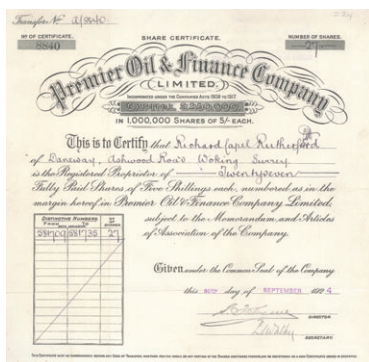 Transfer No 2/8840
Nº OF CERTIFICATE.
8840
SHARE CERTIFICATE.
NUMBER OF SHARES.
27
Premier Oil & Finance Company
(LIMITED.)
INCORPORATED UNDER THE COMPANIES ACTS 1908 TO 1917
CAPITAL £250,000
IN 1,000,000 SHARES OF 5/- EACH.
This is to Certify that Richard Capel Rutherford
of Daneway, Ashwood Road Woking Surrey
is the Registered Proprietor of Twentyseven
Fully Paid Shares of Five Shillings each, numbered as in the
margin hereof in Premier Oil & Finance Company Limited,
subject to the Memorandum and Articles
of Association of the Company.
DISTINCTIVE NUMBERS
FROM TO
Nº OF SHARES
581709 581735 27
Given under the Common Seal of the Company
this day of SEPTEMBER 1924
DIRECTOR
SECRETARY